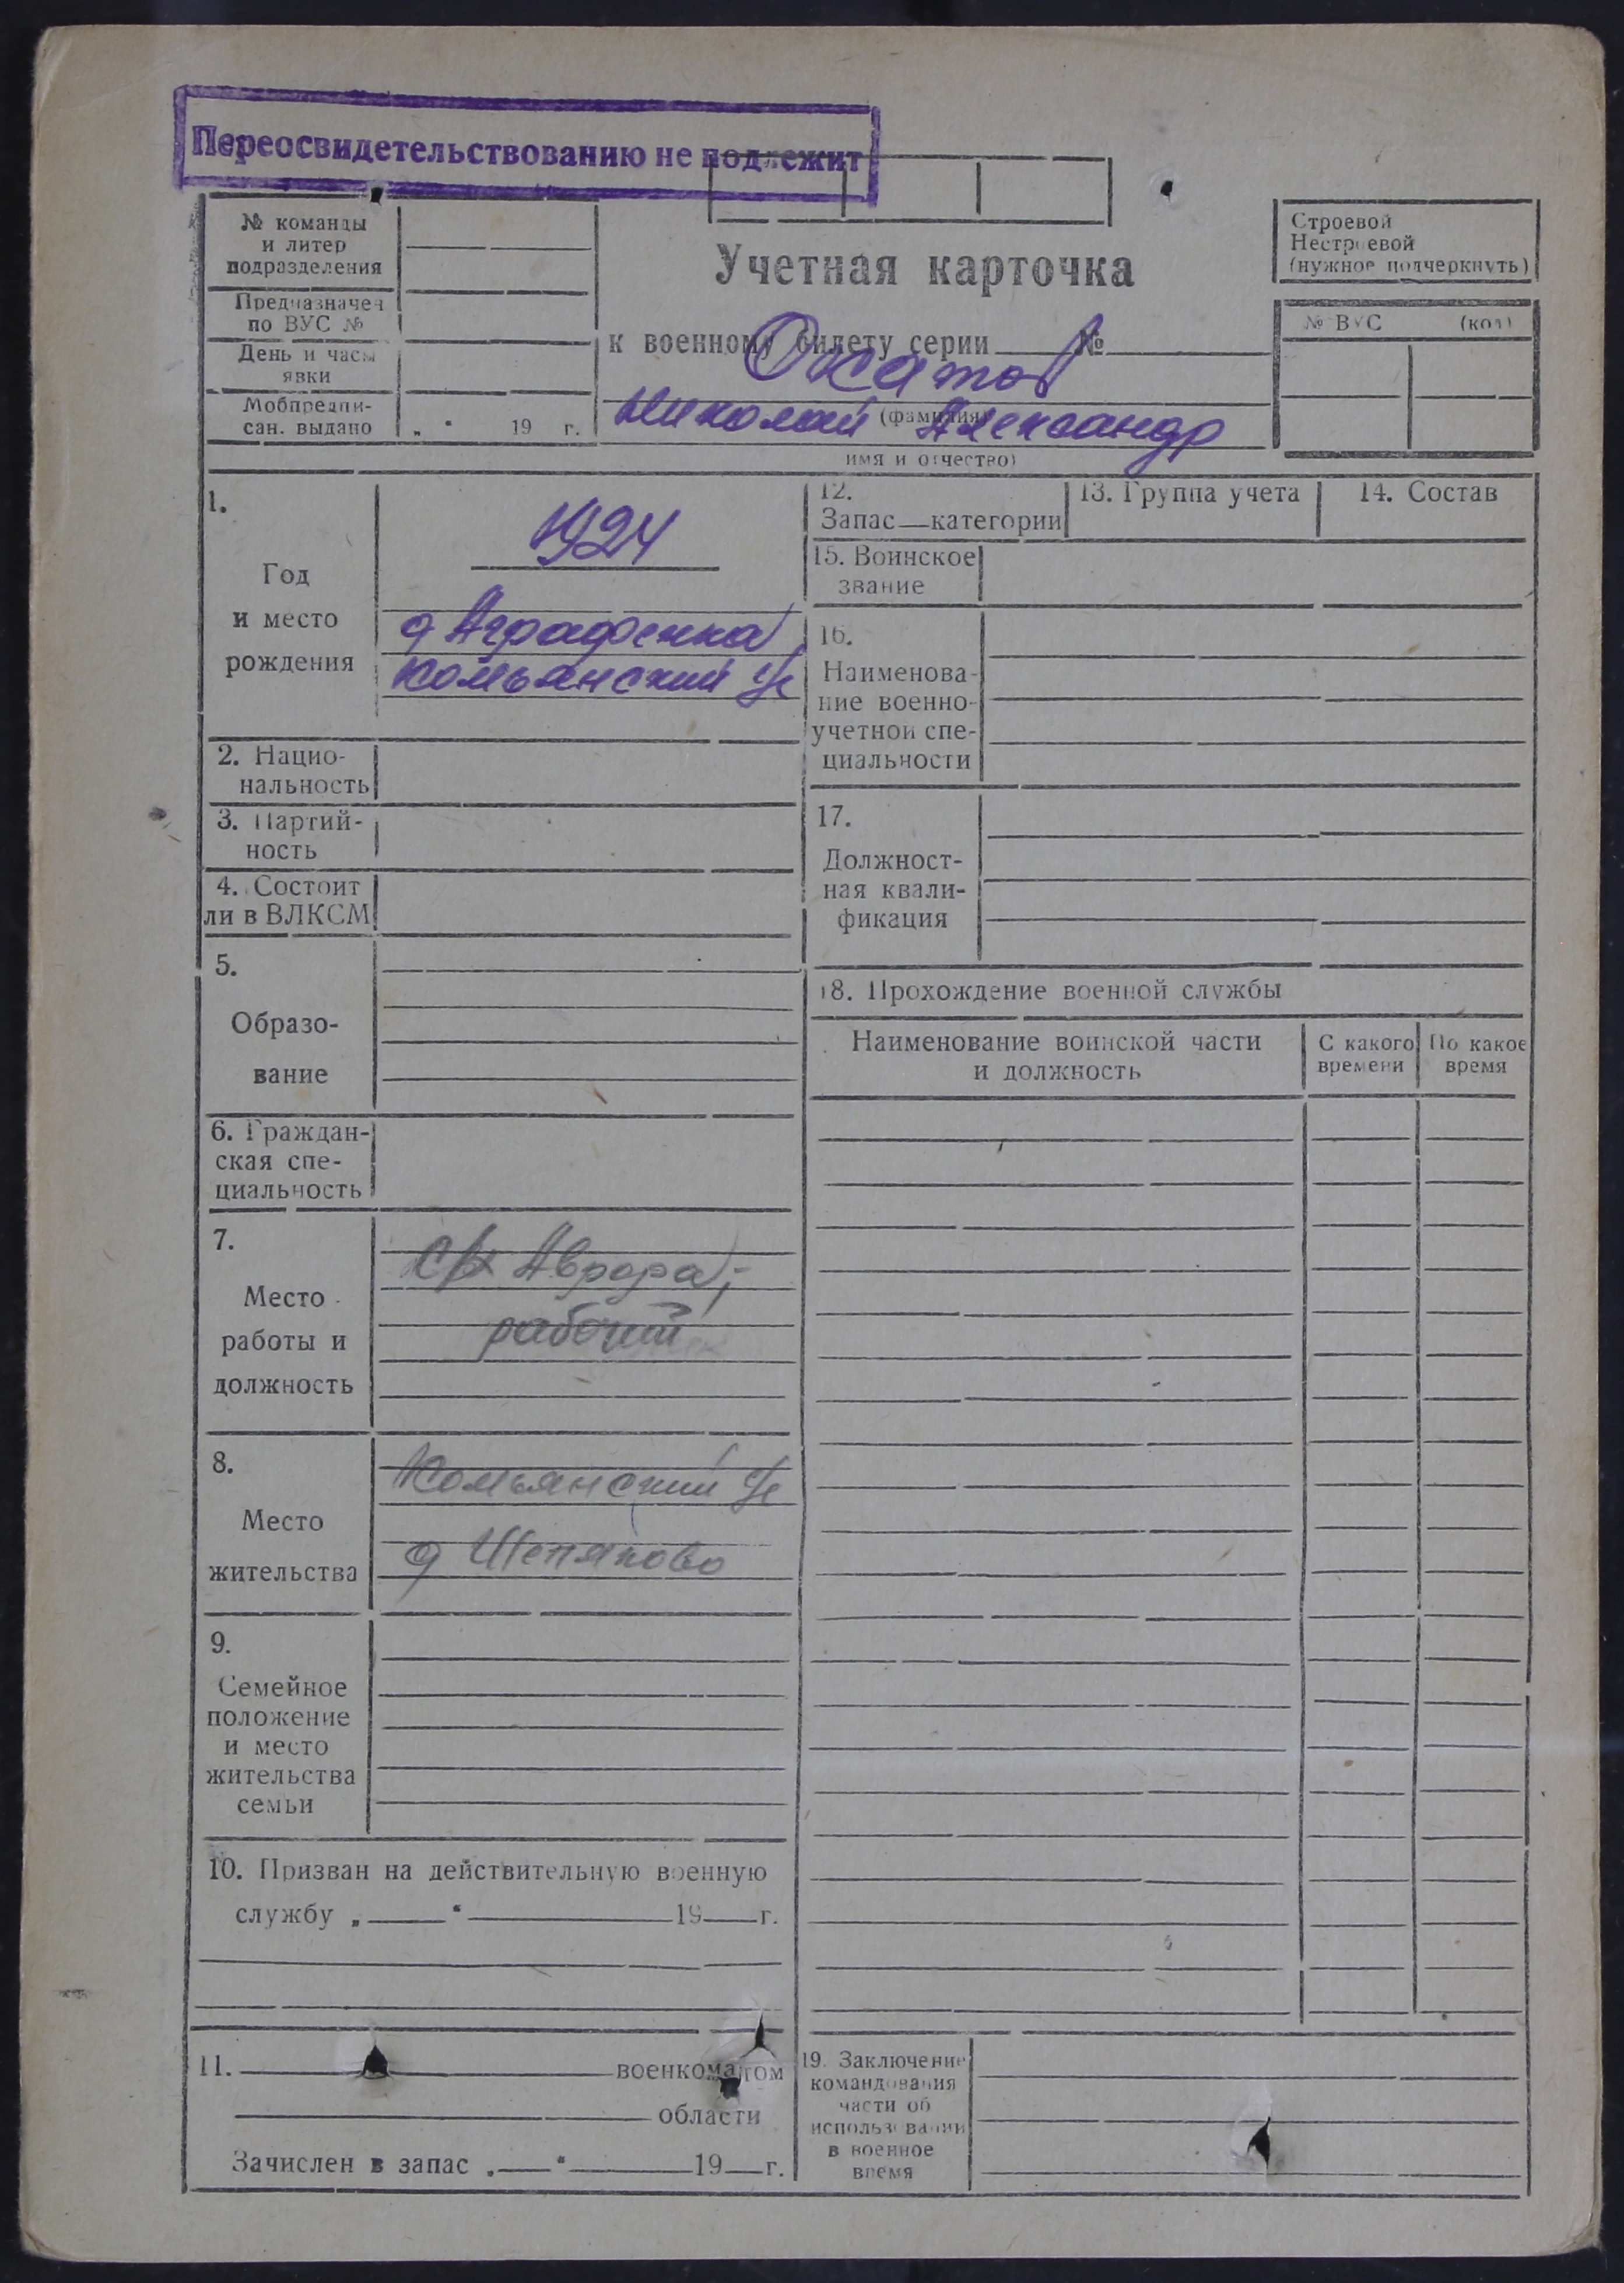 Переосвидетельствованию не подлежит
№ команды
и литер
подразделения
Предназначен
по ВУС №
День и часы
явки
Мобпредпи-
сан. выдано „ “ 19 г.
Учетная карточка
к военному билету серии №
Окатов
(фамилия)
Николай Александр
имя и отчество)
Строевой
Нестроевой
(нужное подчеркнуть)
№ ВУС (код)
1.
Год
и место
рождения
1924
д Аграфенка
Комьянский
2. Нацио-
нальность
3. Партий-
ность
4. Состоит
ли в ВЛКСМ
5.
Образо-
вание
6. Граждан-
ская спе-
циальность
7.
Место
работы и
должность
с/х Аврора;
рабочий
8.
Место
жительства
Комьянский
д Шепяково
9.
Семейное
положение
и место
жительства
семьи
10. Призван на действительную военную
службу „ “ 19 г.
11. военкоматом
области
Зачислен в запас „ “ 19 г.
12.
Запас категории
13. Группа учета
14. Состав
15. Воинское
звание
16.
Наименова-
ние военно-
учетной спе-
циальности
17.
Должност-
ная квали-
фикация
18. Прохождение военной службы
Наименование воинской части
и должность
С какого
времени
По какое
время
19. Заключение
командования
части об
использовании
в военное
время